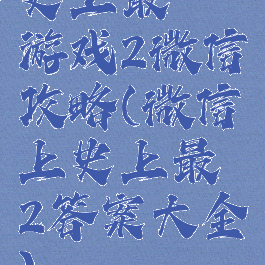 史上最
游戏2微信
攻略(微信
上史上最
2答案大全
)